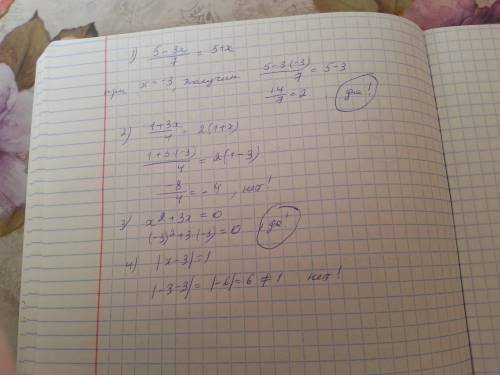 1) (5-3x)/7 = 5+x
при x=-3, получим (5-3·(-3))/7 = 5-3
14/7 = 2 да!
2) (1+3x)/4 = 2(1+x)
(1+3·(-3))/4 = 2(1-3)
-8/4 = -4, нет!
3) x²+3x=0
(-3)²+3·(-3)=0 да!
4) |x-3|=1
|-3-3|=|-6|=6≠1 нет!